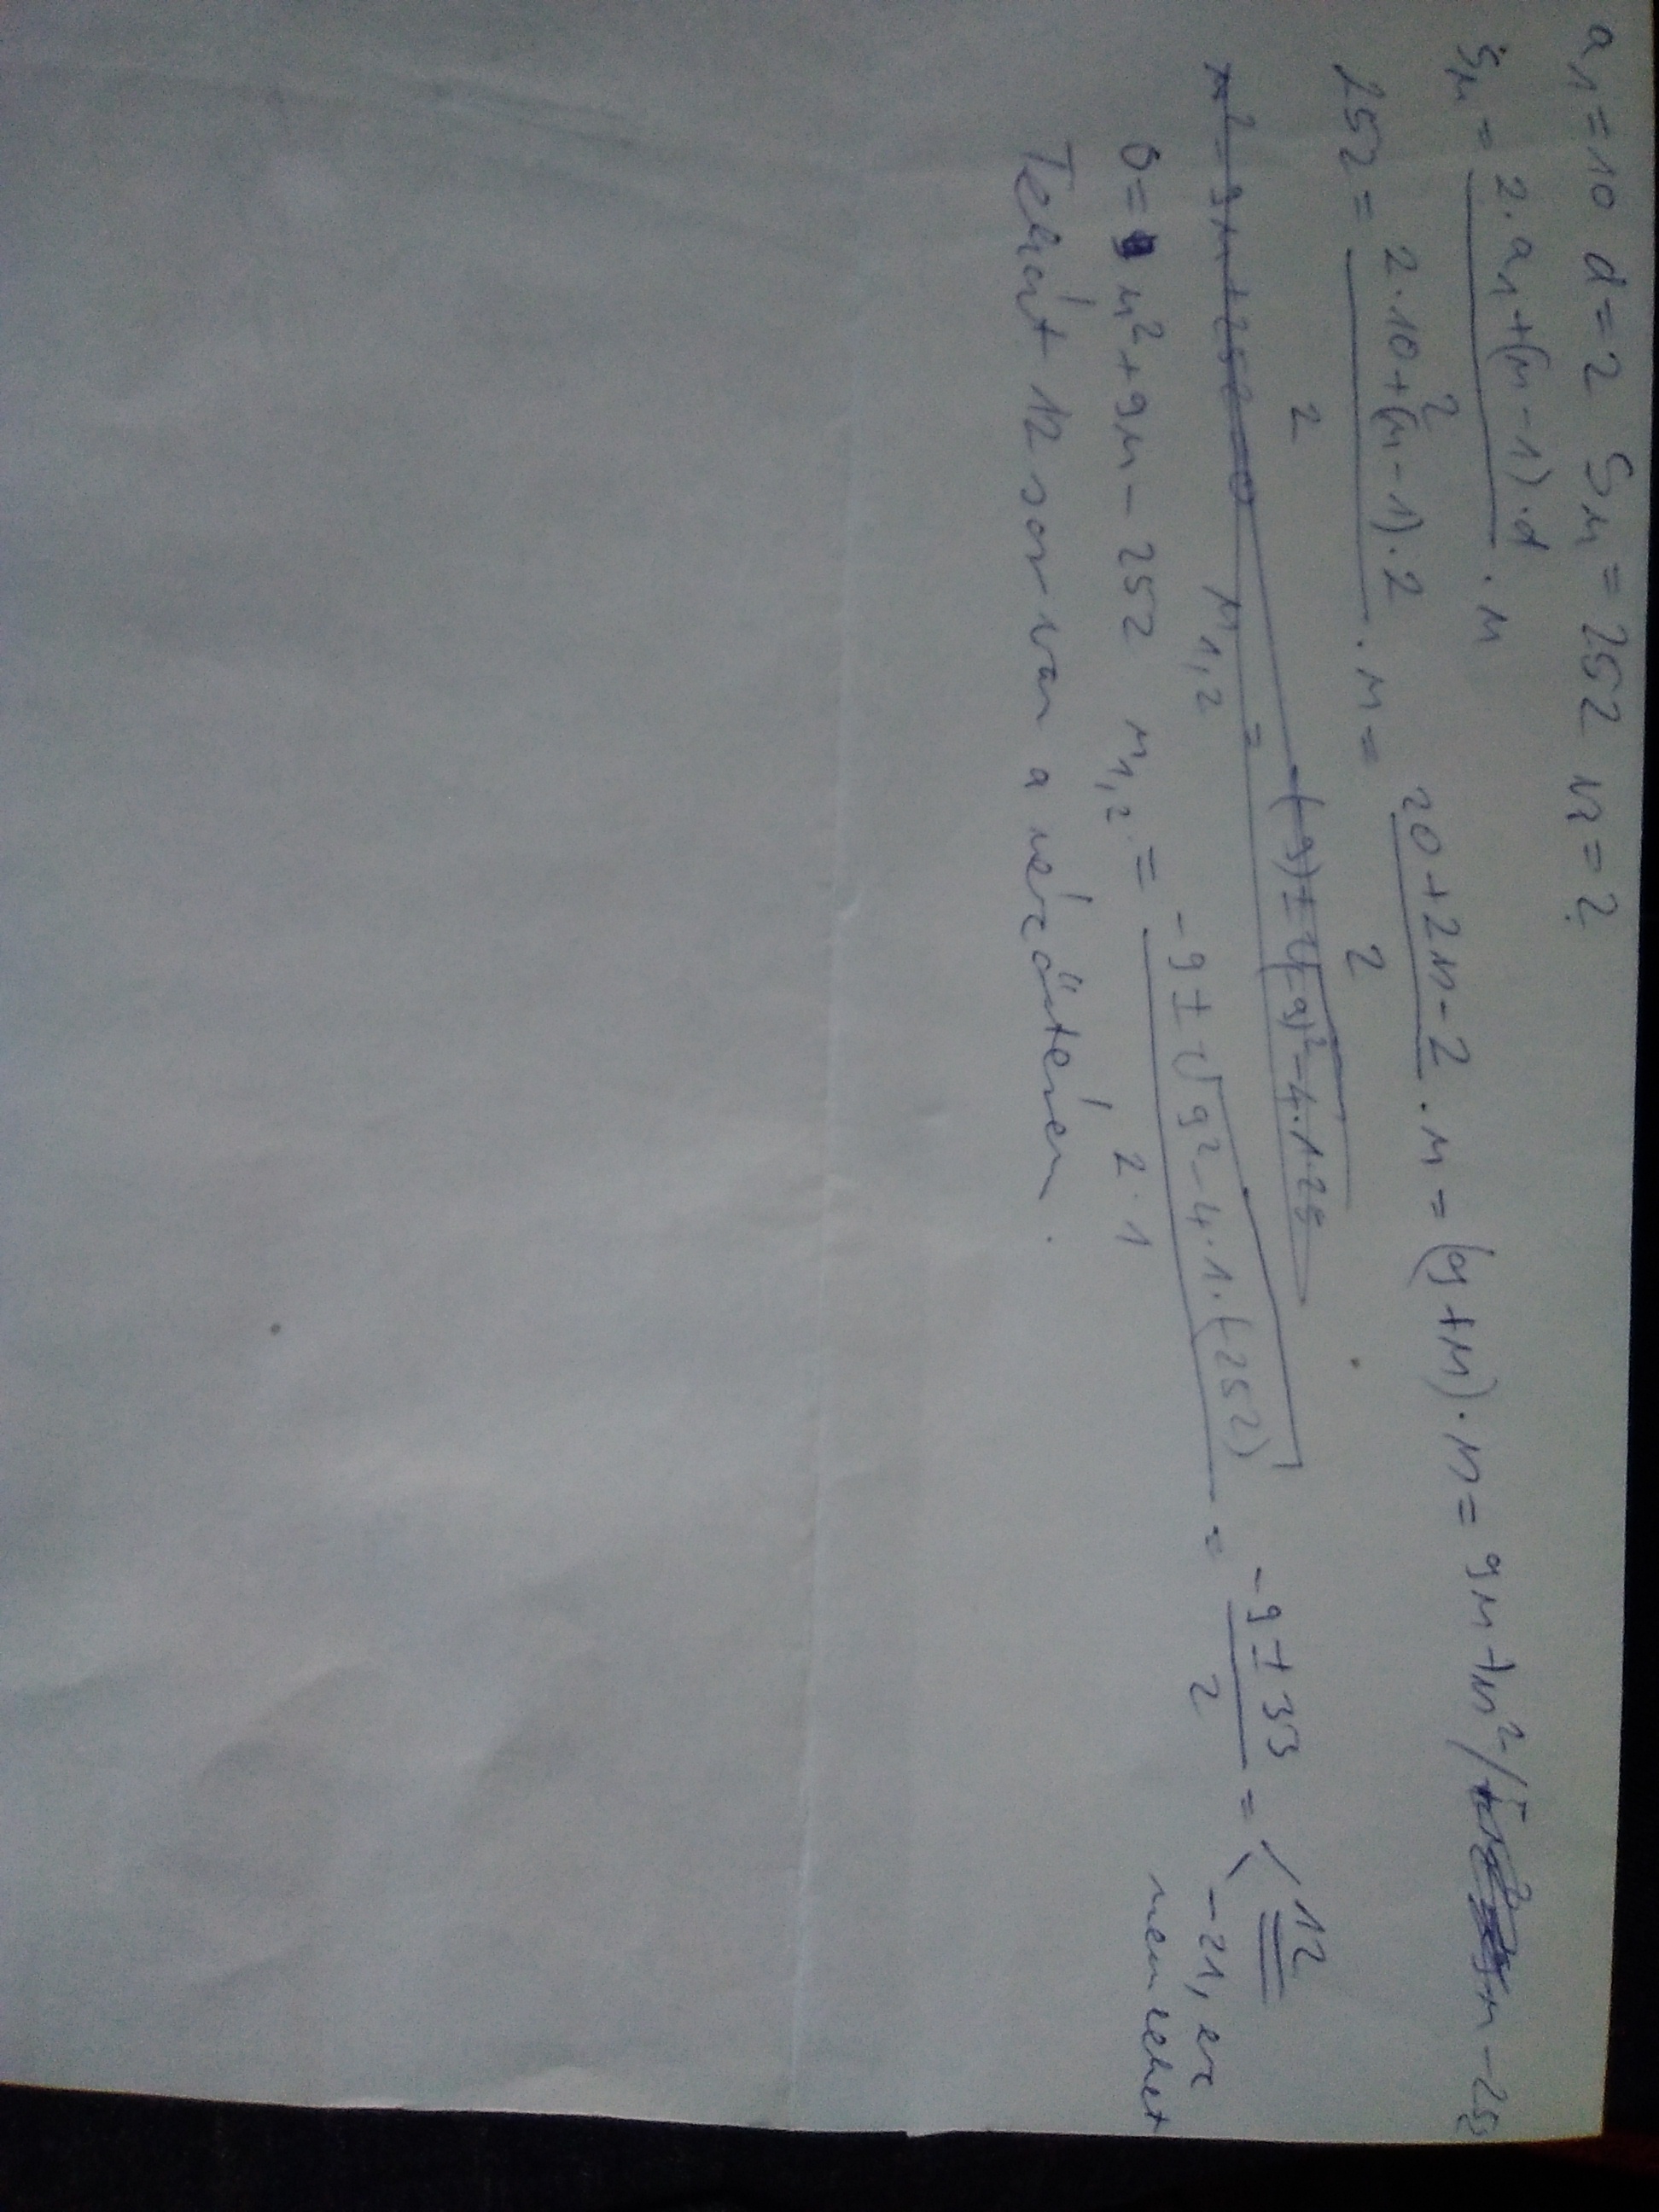 a₁=10 d=2 Sₙ=252 n=?
Sₙ = (2·a₁+(n-1)·d)/2 · n
252 = (2·10+(n-1)·2)/2 · n = (20+2n-2)/2 · n = (9+n)·n = 9n+n² /-252
n²-9n+252=0 n₁,₂ =
0= n²+9n-252 n₁,₂ = (-9±√(9²-4·1·(-252)))/(2·1) = (-9±33)/2 = 12
-21, ez
nem lehet
Tehát 12 sor van a nézőtéren.